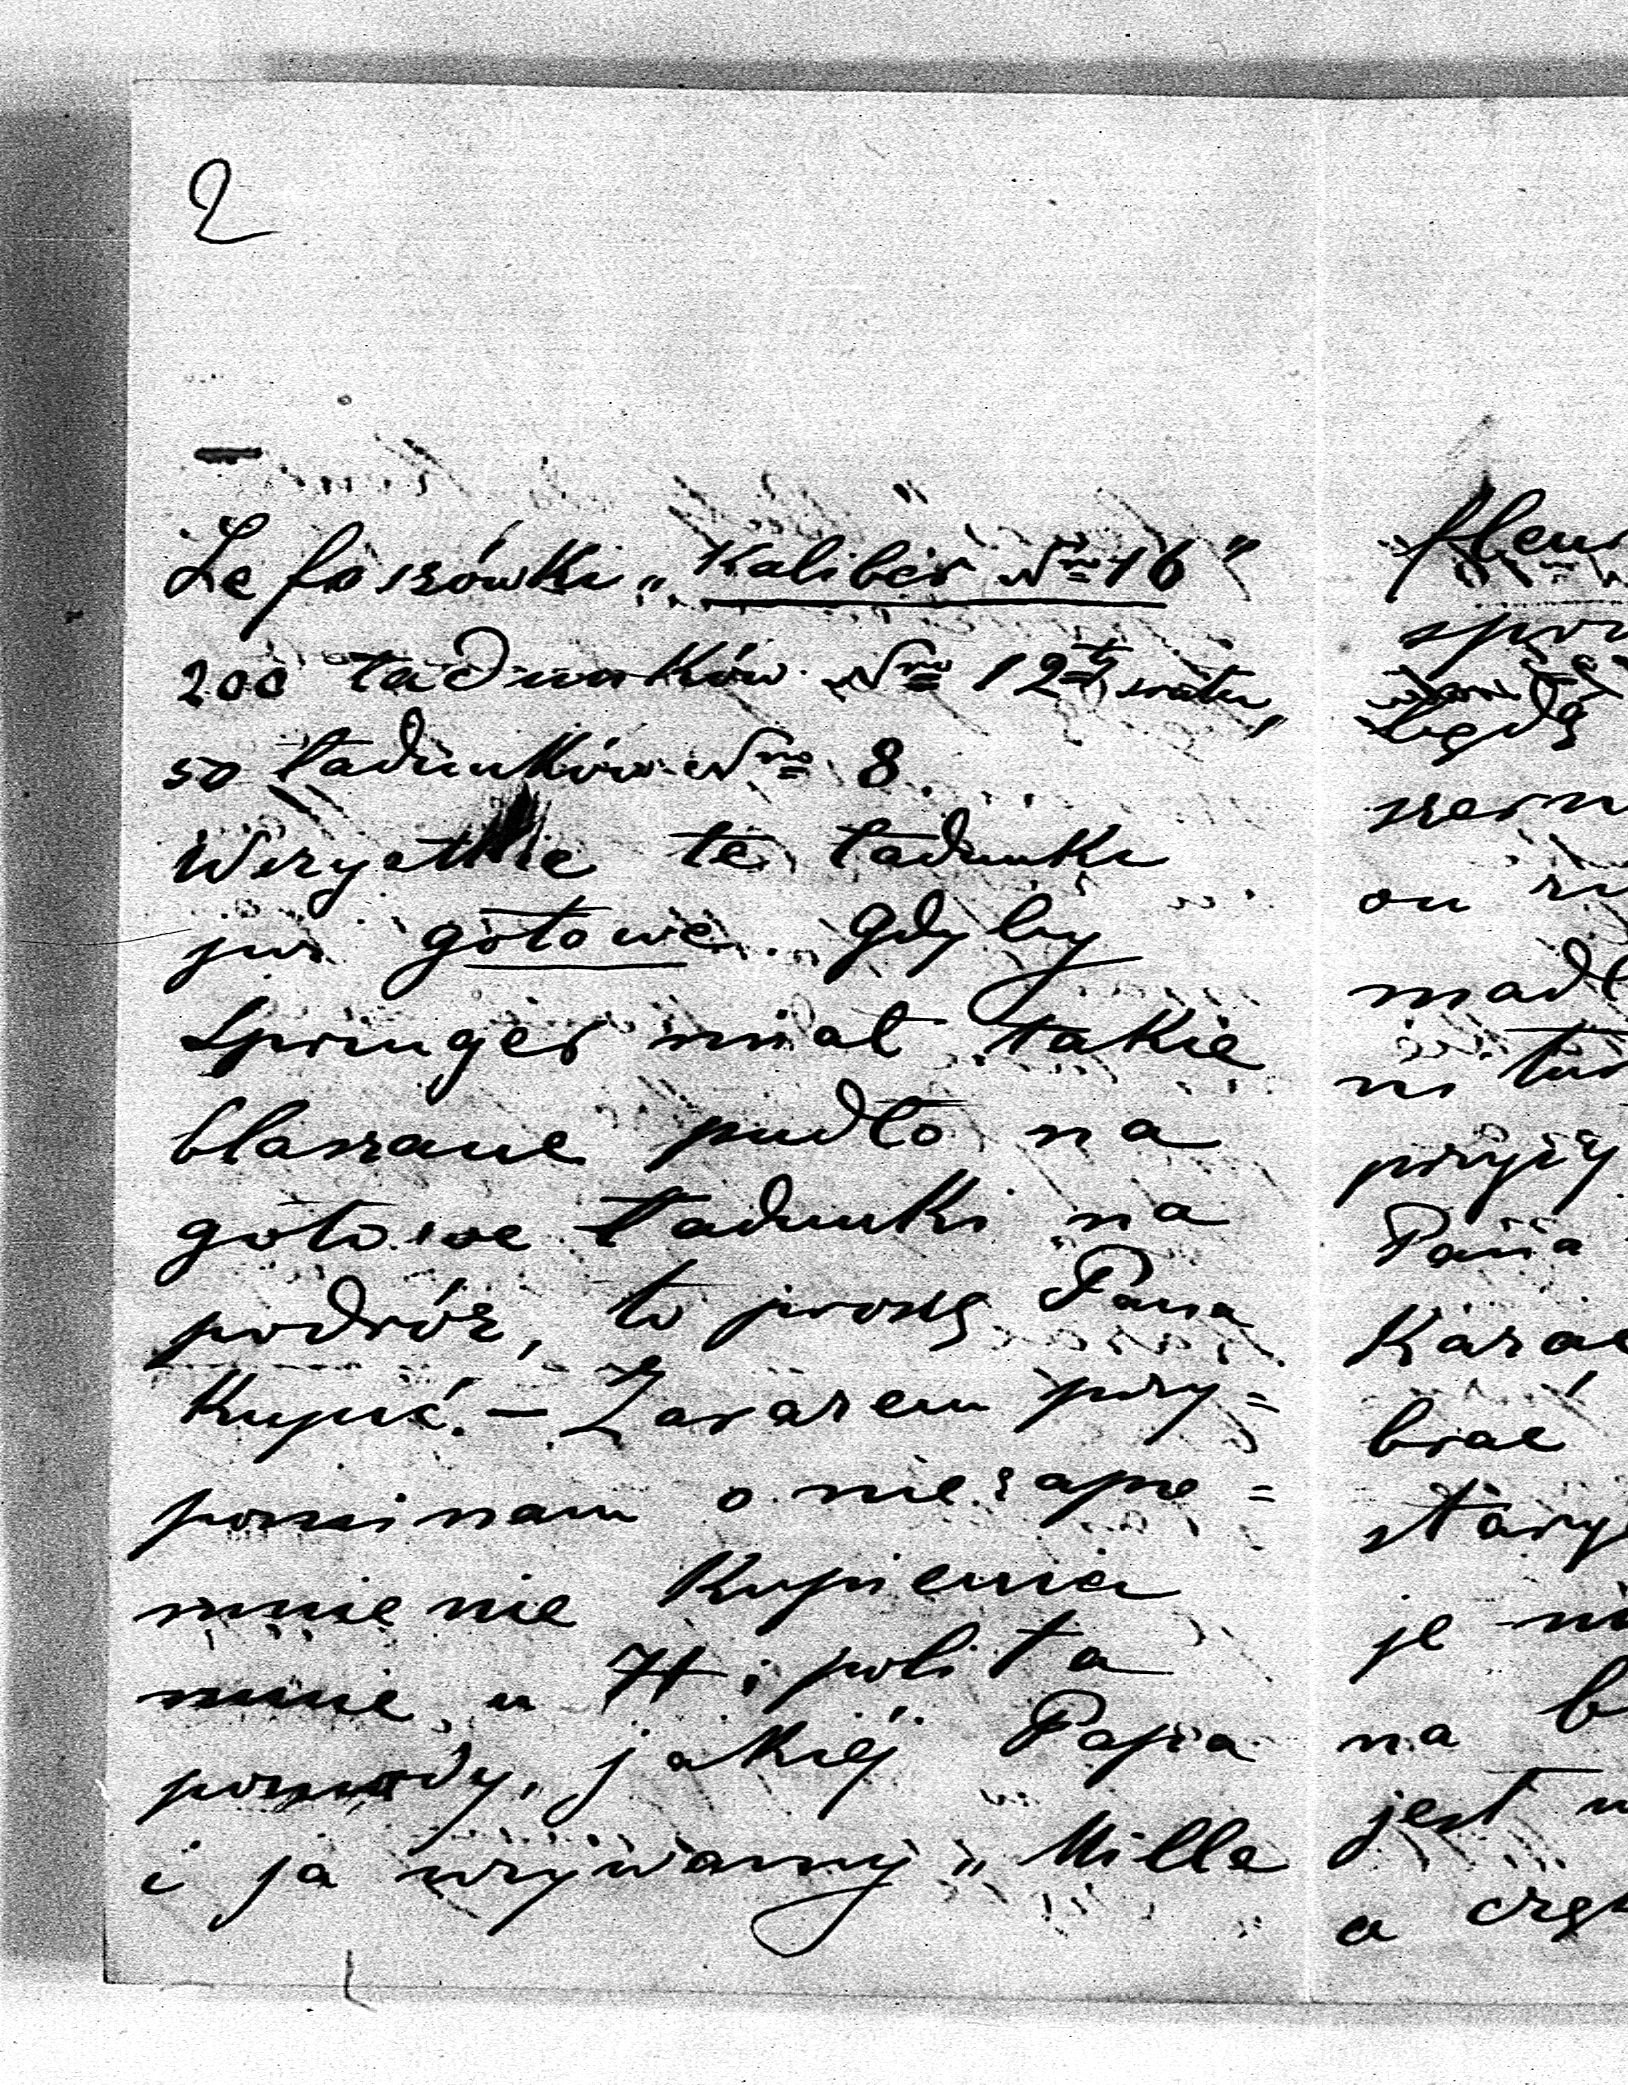 2
Lefoszówki „Kaliber Nro 16"
200 ładunków Nro 12ty śrótu,
50 ładunków Nro 8.
Wszystkie te ładunki
już gotowe. Gdyby
Springer miał takie
blaszane pudło na
gotowe ładunki na
podróż, to proszę Pana
Kupić. – Zarazem przy=
pominam o nie zapo=
mnienie Kupienia
mnie u Hipolita
pomady, jakiéj Papa
i ja używamy „Mille
spor
będę
szern
on
madl
ni
przyj
Pana
Kazac
brać
stary
je
na b
jest
a